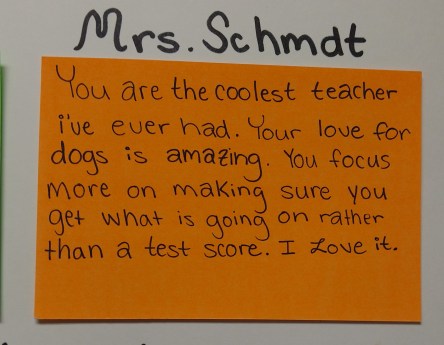 Mrs. Schmdt
You are the coolest teacher
i've ever had. Your love for
dogs is amazing. You focus
more on making sure you
get what is going on rather
than a test score. I Love it.